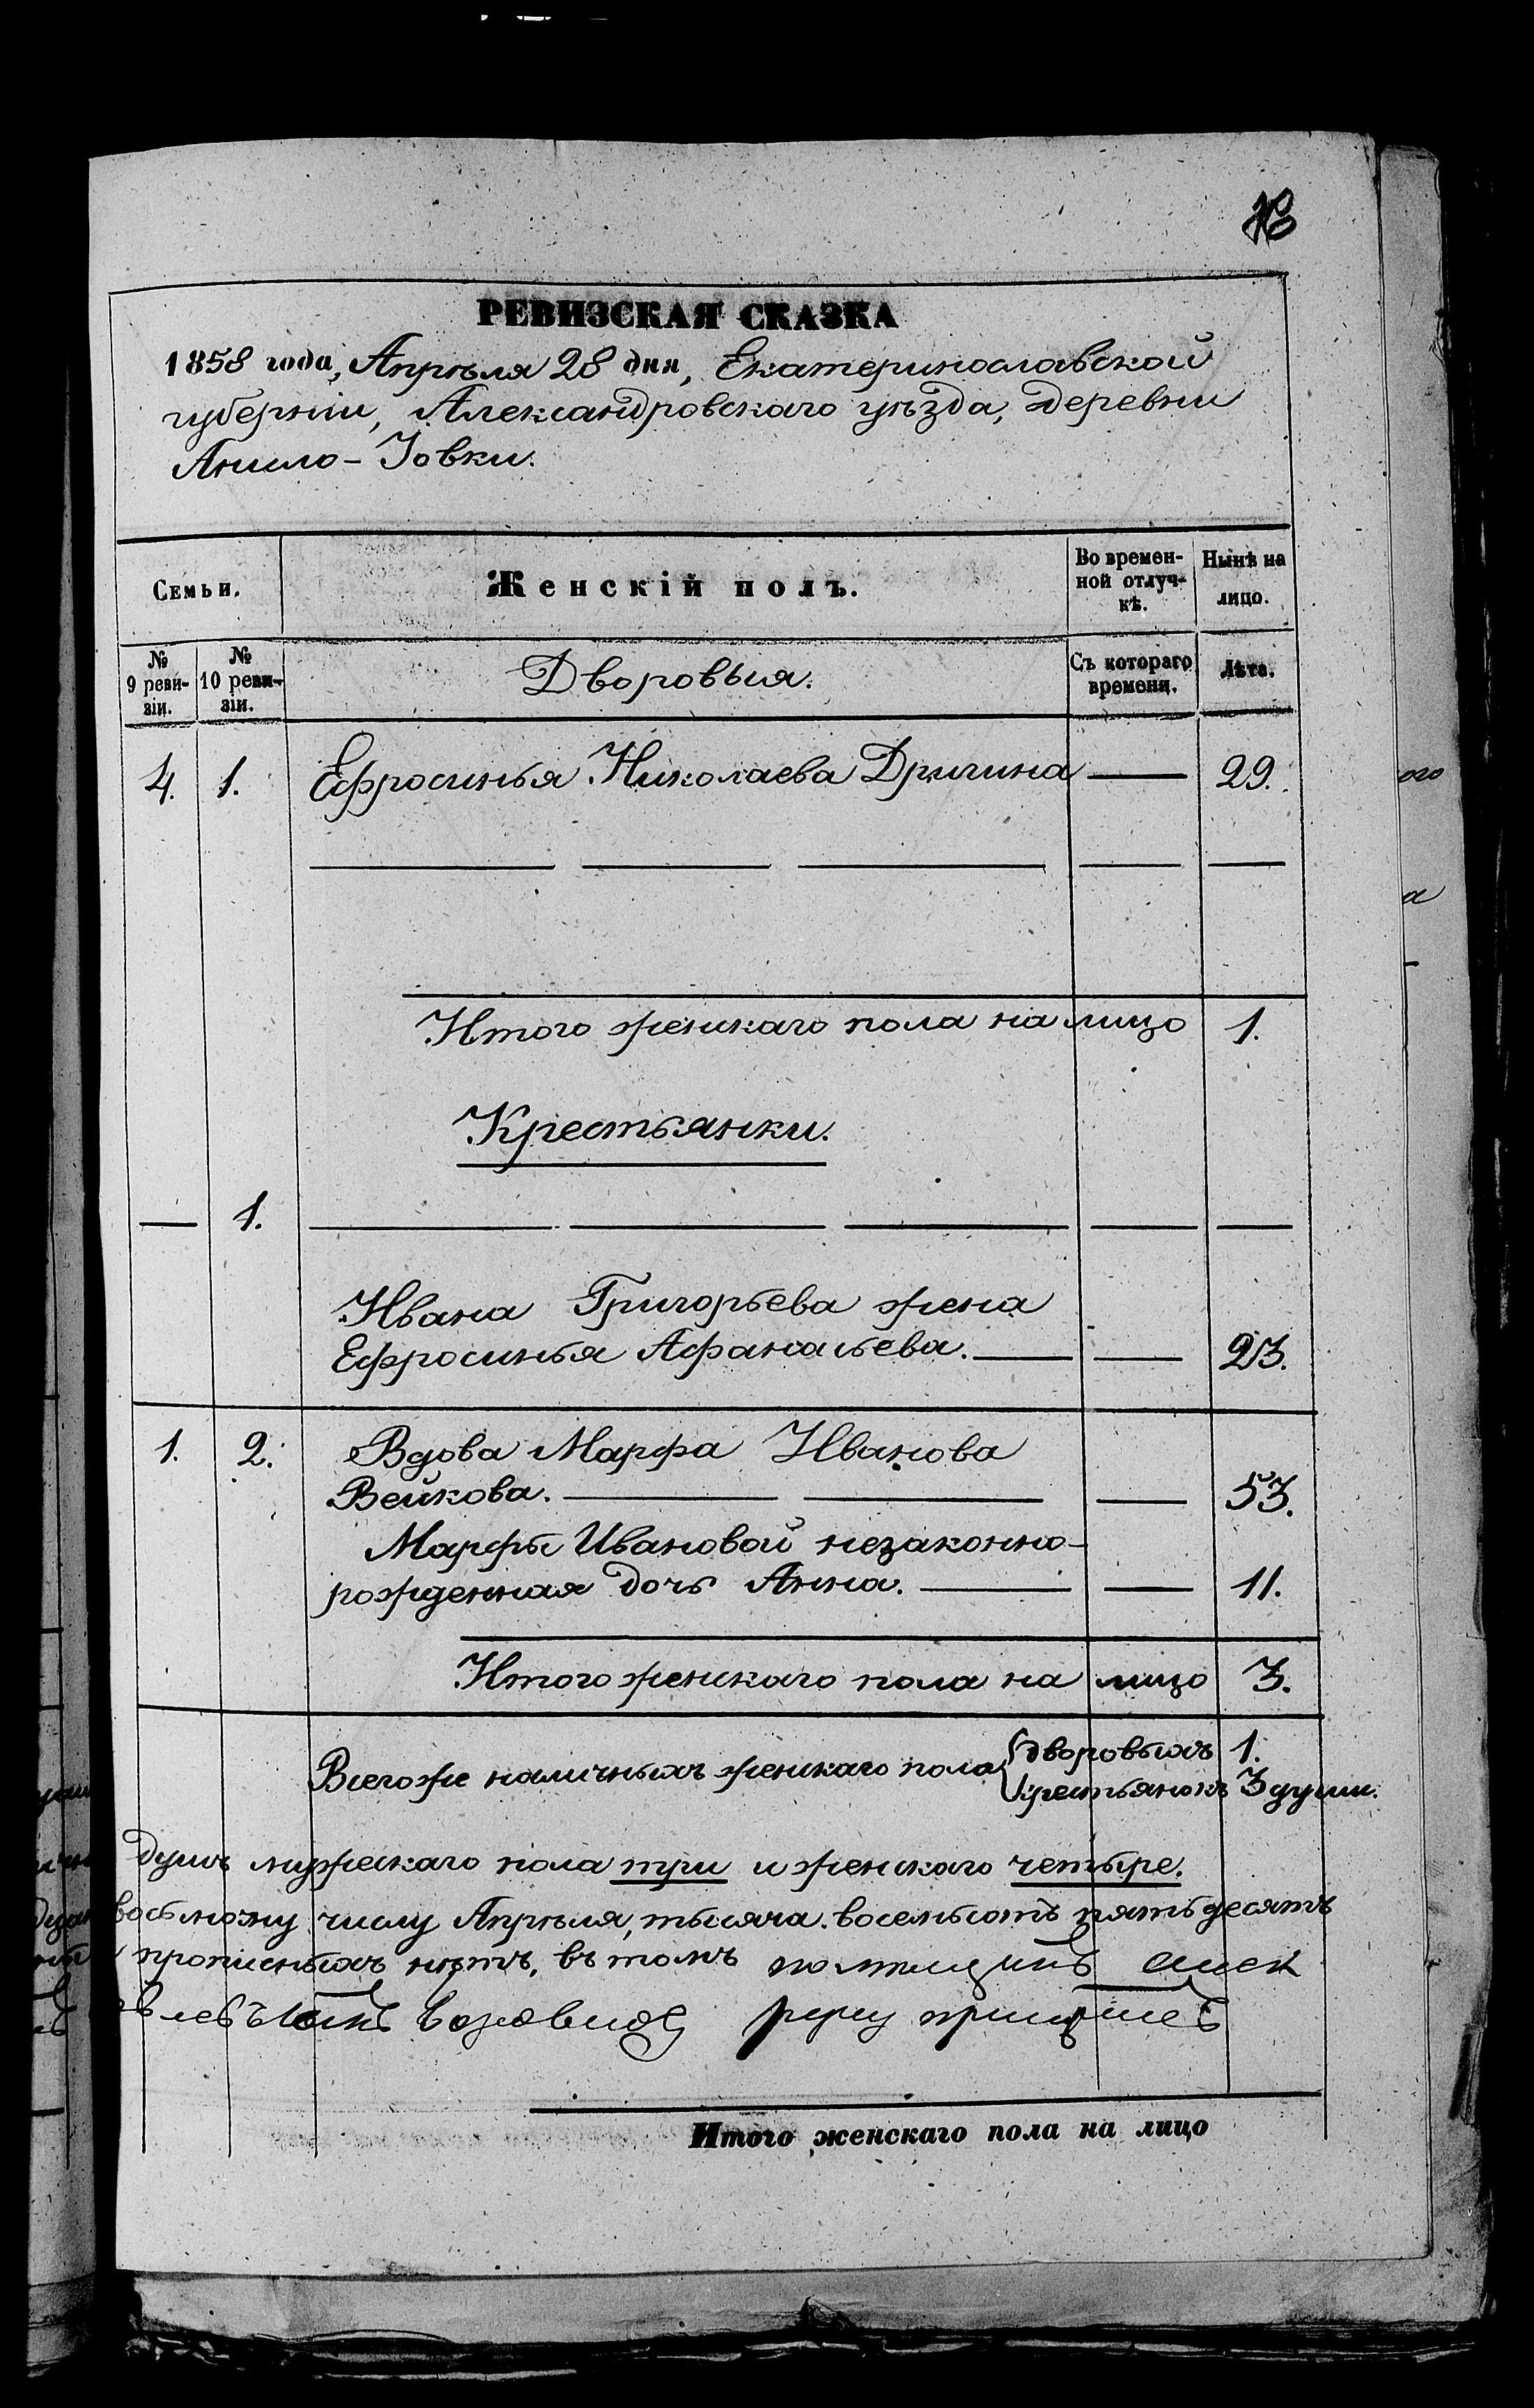 РЕВИЗСКАЯ СКАЗКА
1858 года, Апрѣля 28 дня, Екатеринославской
губерніи, Александровскаго уѣзда, деревни
Анило-Іовки.
Семьи.
Женскій полъ.
Во времен-
ной отлуч-
кѣ.
Нынѣ на
лицо.
№
9 реви-
зіи.
№
10 реви-
зіи.
Дворовыя.
Съ котораго
времени.
Лѣта.
4. 1. Ефросинья Николаева Дричина — 29.
Итого женскаго пола на лицо 1.
Крестьянки.
— 1.
Ивана Григорьева жена
Ефросинья Афанасьева. — — 23.
1. 2. Вдова Марфа Иванова
Вейкова. — — — 53.
Марфы Ивановой незаконно-
рожденная дочь Анна. — — 11.
Итого женскаго пола на лицо 3.
Всего же наличныхъ женскаго пола { дворовыхъ 1.
крестьянокъ 3 души.
душъ мужескаго пола три и женскаго четыре.
восьмому числу Апрѣля, тысяча восемьсотъ пятьдесятъ
прописныхъ нѣтъ, въ томъ
руку
Итого женскаго пола на лицо